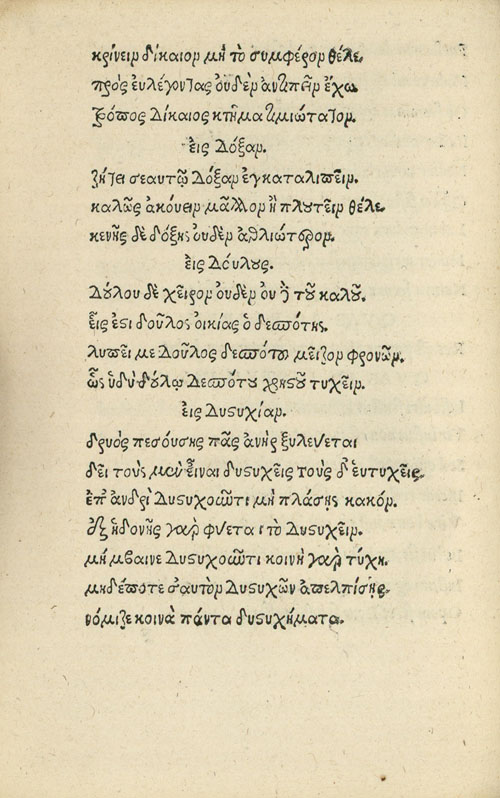 κρίνειν δίκαιον μὴ τὸ συμφέρον θέλε.
πρὸς εὖ λέγοντας οὐδὲν ἀντιπεῖν ἔχω.
τρόπος Δίκαιος κτῆμα τιμιώτατον.
εἰς Δόξαν.
ζήτει σεαυτῷ Δόξαν ἐγκαταλιπεῖν.
καλῶς ἀκούειν μᾶλλον ἢ πλουτεῖν θέλε.
κενῆς δὲ δόξης οὐδὲν ἀθλιώτερον.
εἰς Δούλους.
Δούλου δὲ χεῖρον οὐδὲν οὐ τοῦ καλοῦ.
εἷς ἐστὶ δοῦλος οἰκίας ὁ δεσπότης.
λυπεῖ με Δοῦλος δεσπότου μεῖζον φρονῶν.
ὡς ἡδὺ δούλῳ Δεσπότου χρηστοῦ τυχεῖν.
εἰς Δυστυχίαν.
δρυὸς πεσούσης πᾶς ἀνὴρ ξυλεύεται
δεῖ τοὺς μὲν εἶναι δυστυχεῖς τοὺς δ' εὐτυχεῖς.
ἐπ' ἀνδρὶ Δυστυχοῦντι μὴ πλάσῃς κακόν.
ἐξ ἡδονῆς γὰρ φύεται τὸ Δυστυχεῖν.
μὴ μβαινε Δυστυχοῦντι κοινὴ γὰρ τύχη.
μηδέποτε σαυτὸν Δυστυχῶν ἀπελπίσῃς.
νόμιζε κοινὰ πάντα δυστυχήματα.